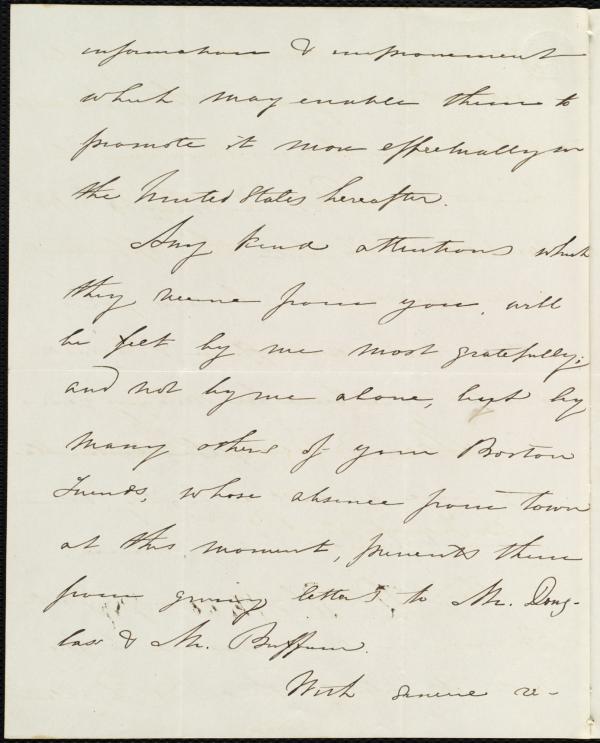 information & improvement
which may enable them to
promote it more effectually in
the United States hereafter.
Any kind attentions which
they receive from you, will
be felt by me most gratefully;
and not by me alone, but by
many others of your Boston
friends, whose absence from town
at this moment, prevents them
from giving letters to Mr. Doug-
lass & Mr. Buffum.
With sincere re-